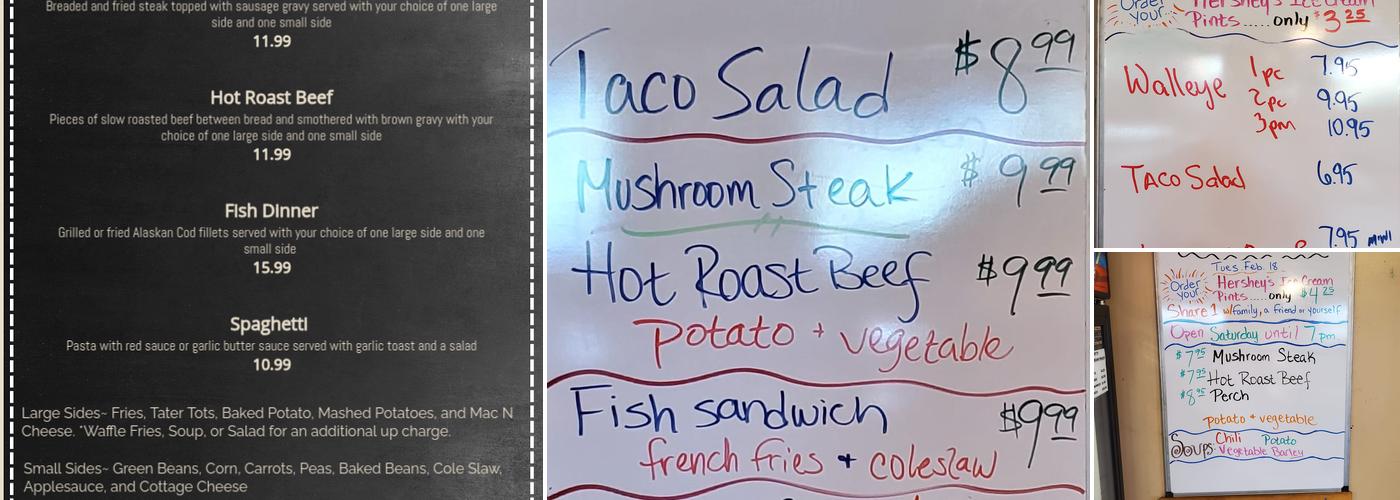 Breaded and fried steak topped with sausage gravy served with your choice of one large
side and one small side
11.99
Hot Roast Beef
Pieces of slow roasted beef between bread and smothered with brown gravy with your
choice of one large side and one small side
11.99
Fish Dinner
Grilled or fried Alaskan Cod fillets served with your choice of one large side and one
small side
15.99
Spaghetti
Pasta with red sauce or garlic butter sauce served with garlic toast and a salad
10.99
Large Sides~ Fries, Tater Tots, Baked Potato, Mashed Potatoes, and Mac N
Cheese. *Waffle Fries, Soup, or Salad for an additional up charge.
Small Sides~ Green Beans, Corn, Carrots, Peas, Baked Beans, Cole Slaw,
Applesauce, and Cottage Cheese
Taco Salad $8.99
Mushroom Steak $9.99
Hot Roast Beef $9.99
potato + vegetable
Fish sandwich $9.99
french fries + coleslaw
Order your... Hershey's Ice Cream
Pints.....only $3.25
Walleye 1pc 7.95
2pc 9.95
3pm 10.95
Taco Salad 6.95
7.95
Tues Feb. 18
Order your Hershey's Ice Cream
Pints....only $4.25
Share 1 w/family, a friend or yourself
Open Saturday until 7pm
$7.95 Mushroom Steak
$7.95 Hot Roast Beef
$8.95 Perch
potato + vegetable
Soups: Chili Potato
Vegetable Barley